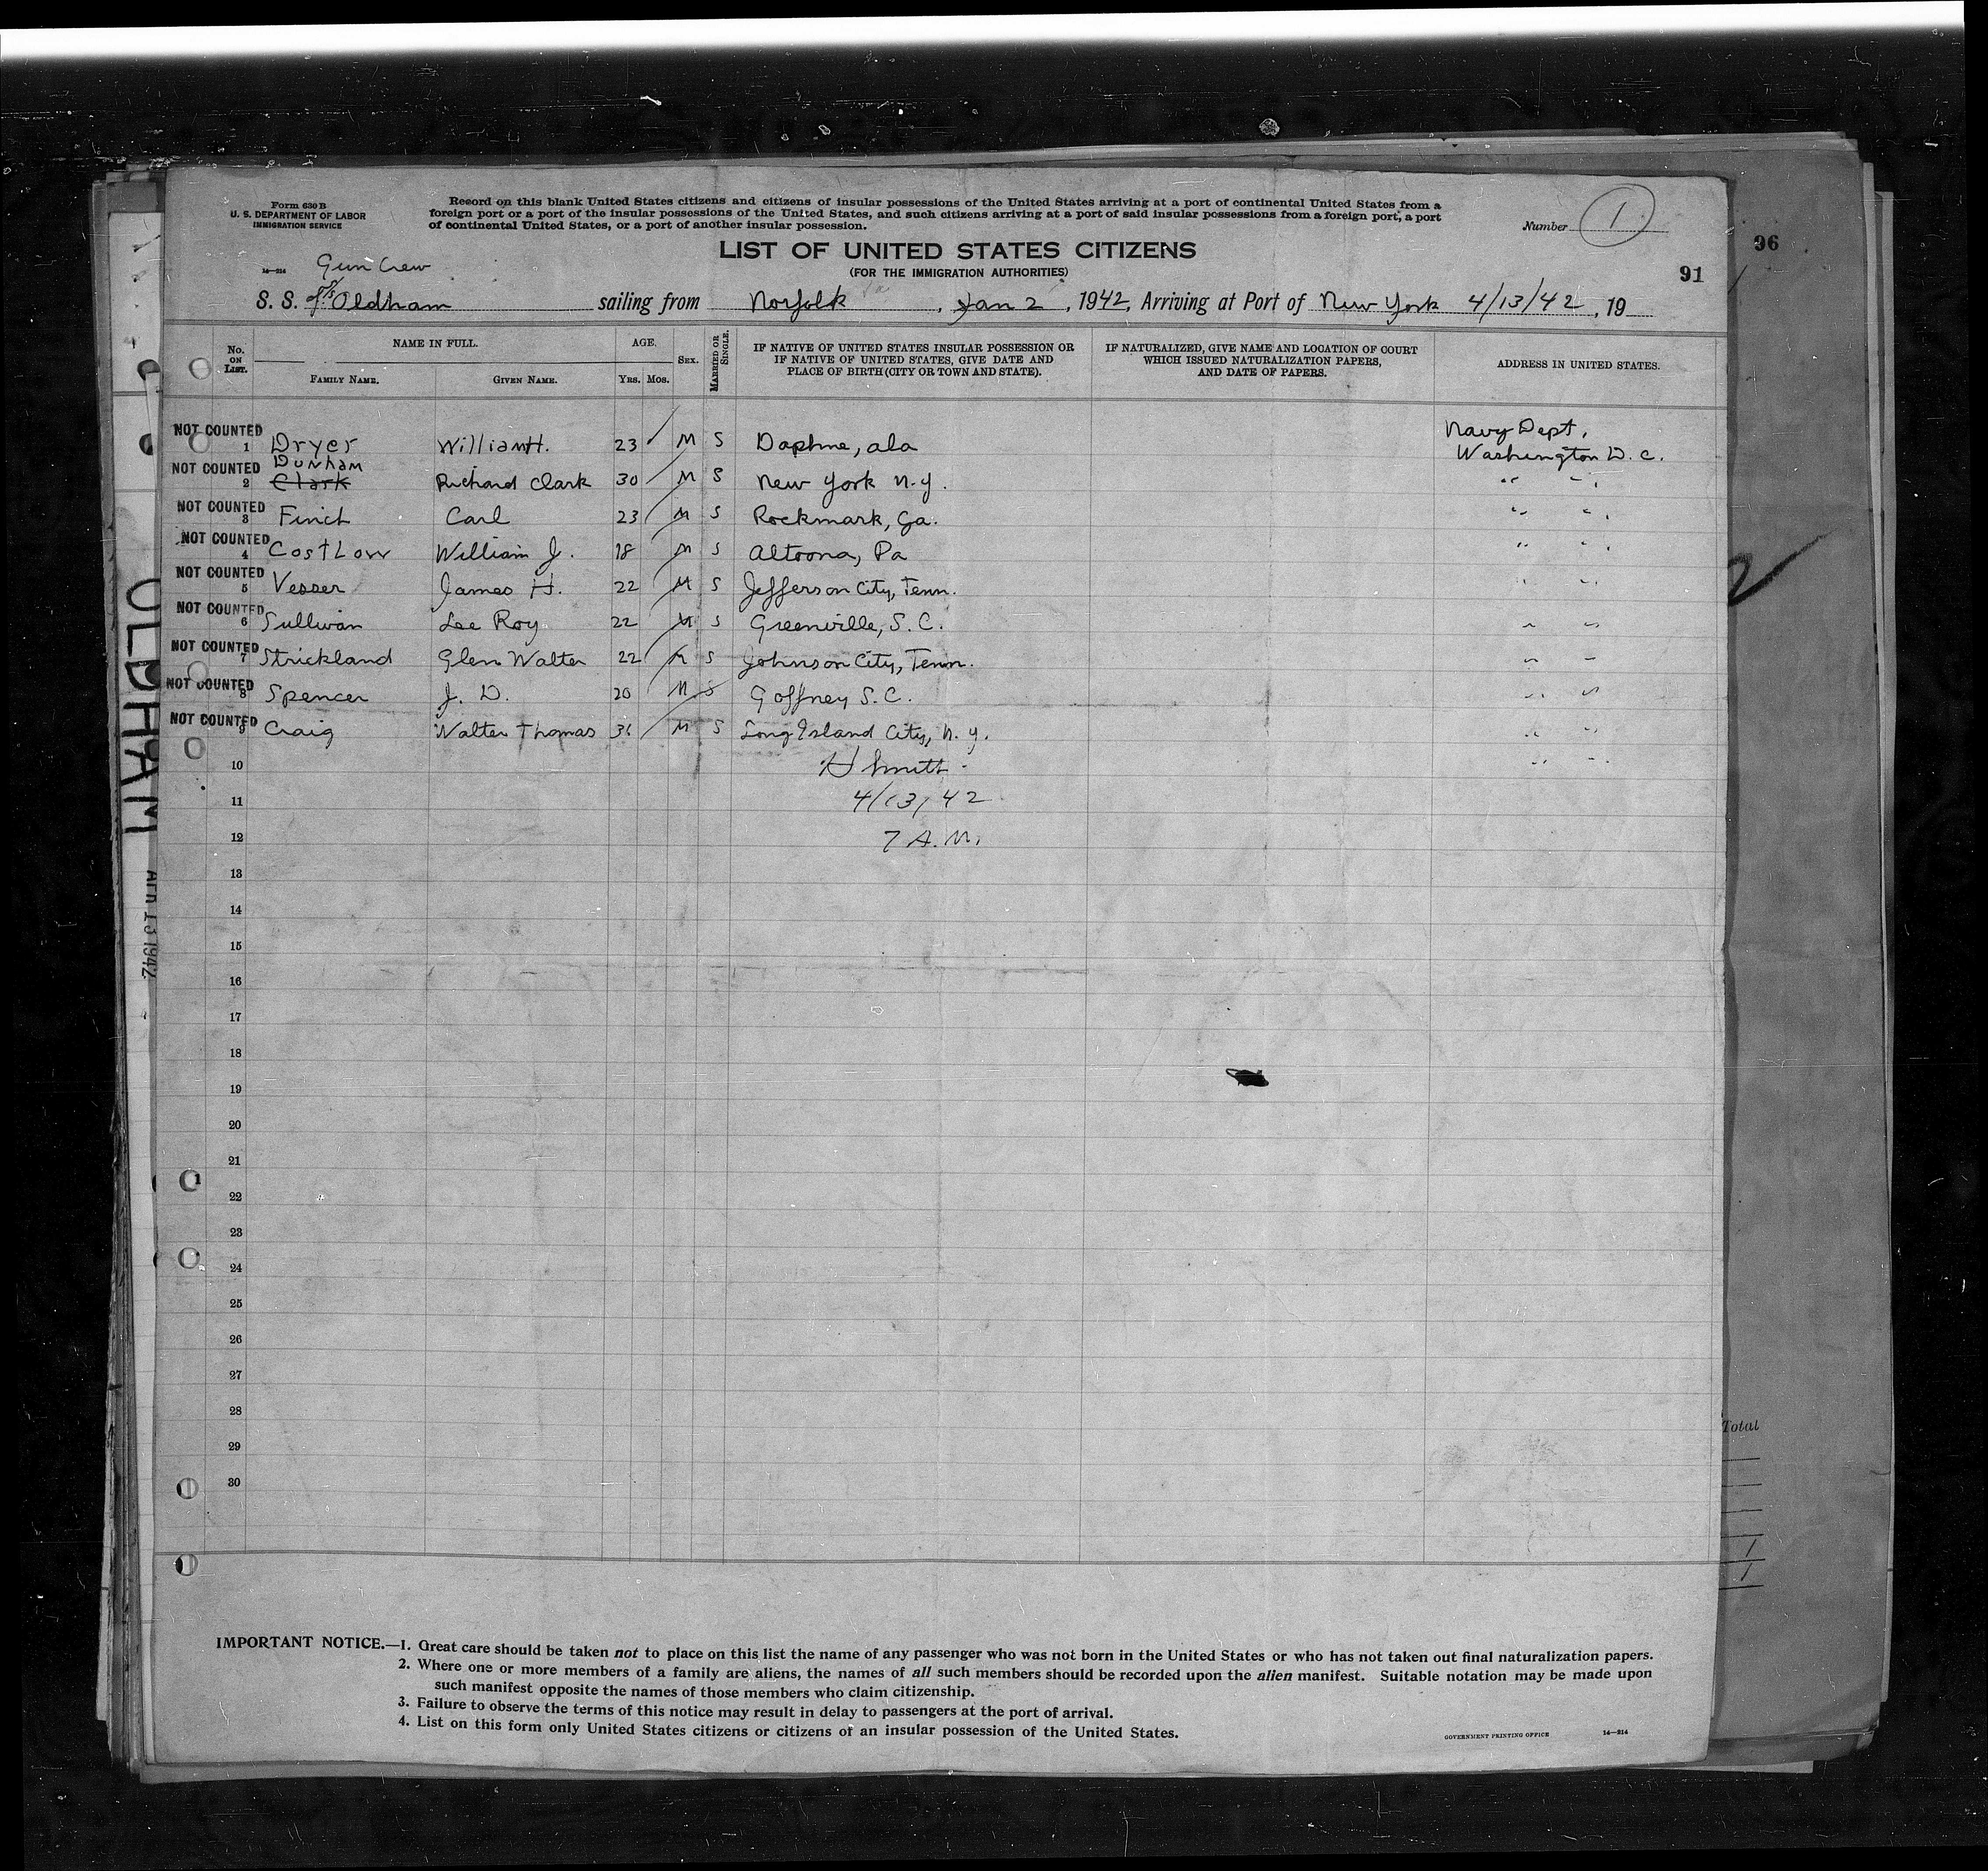 Form 630 B
U. S. DEPARTMENT OF LABOR
IMMIGRATION SERVICE
Record on this blank United States citizens and citizens of insular possessions of the United States arriving at a port of continental United States from a
foreign port or a port of the insular possessions of the United States, and such citizens arriving at a port of said insular possessions from a foreign port, a port
of continental United States, or a port of another insular possession.
Number 1
96
LIST OF UNITED STATES CITIZENS
(FOR THE IMMIGRATION AUTHORITIES)
91
14—214
Gun Crew
S. S. of S/S Oldham sailing from Norfolk Va, Jan 2, 1942, Arriving at Port of New York 4/13/42, 19
No. ON LIST.
NAME IN FULL.
FAMILY NAME.
GIVEN NAME.
AGE.
YRS. MOS.
SEX.
MARRIED OR SINGLE.
IF NATIVE OF UNITED STATES INSULAR POSSESSION OR
IF NATIVE OF UNITED STATES, GIVE DATE AND
PLACE OF BIRTH (CITY OR TOWN AND STATE).
IF NATURALIZED, GIVE NAME AND LOCATION OF COURT
WHICH ISSUED NATURALIZATION PAPERS,
AND DATE OF PAPERS.
ADDRESS IN UNITED STATES.
NOT COUNTED 1 Dryer William H. 23 M S Daphne, ala Navy Dept, Washington D.C.
NOT COUNTED 2 Clark Dunham Richard Clark 30 M S New York N.Y. " "
NOT COUNTED 3 Finch Carl 23 M S Rockmark, Ga. " "
NOT COUNTED 4 Costlow William J. 18 M S Altoona, Pa " "
NOT COUNTED 5 Vesser James H. 22 M S Jefferson City, Tenn. " "
NOT COUNTED 6 Sullivan Lee Roy 22 M S Greenville, S.C. " "
NOT COUNTED 7 Strickland Glen Walter 22 M S Johnson City, Tenn. " "
NOT COUNTED 8 Spencer J. D. 20 M S Goffney S.C. " "
NOT COUNTED 9 Craig Walter Thomas M S Long Island City, N.Y. " "
10 H Smith " "
11 4/13/42
12 7 A.M.
13
14
15
16
17
18
19
20
21
22
23
24
25
26
27
28
29
30
OLDHAM
APR 13 1942
Total
IMPORTANT NOTICE.—1. Great care should be taken not to place on this list the name of any passenger who was not born in the United States or who has not taken out final naturalization papers.
2. Where one or more members of a family are aliens, the names of all such members should be recorded upon the alien manifest. Suitable notation may be made upon
such manifest opposite the names of those members who claim citizenship.
3. Failure to observe the terms of this notice may result in delay to passengers at the port of arrival.
4. List on this form only United States citizens or citizens of an insular possession of the United States.
GOVERNMENT PRINTING OFFICE 14—214